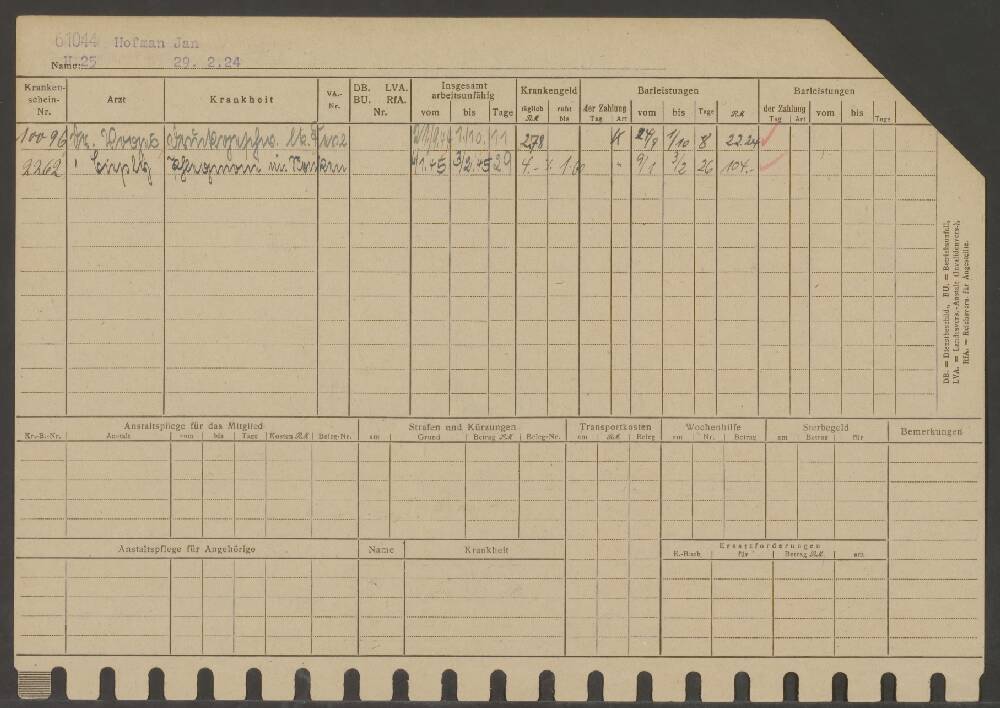 61044 Hofman Jan
Name: H 25 29. 2.24
Kranken-schein-Nr. Arzt Krankheit VA.-Nr. DB. BU. LVA. RfA. Nr. Insgesamt arbeitsunfähig vom bis Tage Krankengeld täglich RM ruht bis Barleistungen der Zahlung Tag Art vom bis Tage RM Barleistungen der Zahlung Tag Art vom bis Tage
10096 Dr. 1/10. 11 278 K 24/9 1/10 8 22.24
2262 " 3/2.45 29 4.- " 9/1 3/2 26 104.-
DB. = Dienstbeschäd., BU. = Betriebsunfall,
LVA. = Landesvers.-Anstalt (Invalidenvers.),
RfA. = Reichsvers. für Angestellte.
Anstaltspflege für das Mitglied Strafen und Kürzungen Transportkosten Wochenhilfe Sterbegeld Bemerkungen
Kr.-B.-Nr. Anstalt vom bis Tage Kosten RM Beleg-Nr. am Grund Betrag RM Beleg-Nr. am RM Beleg am Nr. Betrag am Betrag für
Anstaltspflege für Angehörige Name Krankheit Ersatzforderungen
K.-Buch für Betrag RM am